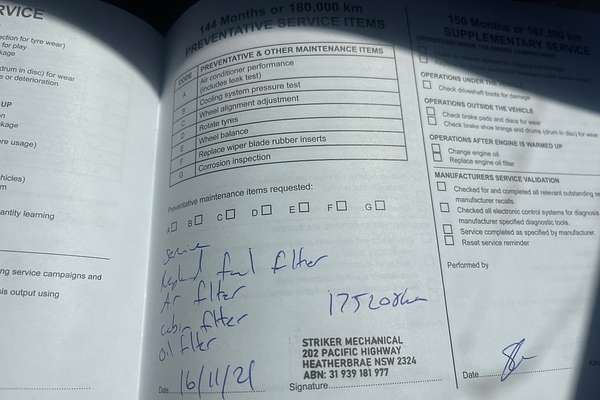 RVICE
ection for tyre wear)
for play
kage
drum in disc) for wear
s or deterioration
UP
kage
re usage)
hicles)
m
antity learning
ng service campaigns and
is output using
144 Months or 180,000 km
PREVENTATIVE SERVICE ITEMS
CODE PREVENTATIVE & OTHER MAINTENANCE ITEMS
A Air conditioner performance
(includes leak test)
B Cooling system pressure test
C Wheel alignment adjustment
D Rotate tyres
E Wheel balance
F Replace wiper blade rubber inserts
G Corrosion inspection
Preventative maintenance items requested:
A B C D E F G
Service
Replaced fuel filter
Air filter
cabin filter
oil filter
175208km
STRIKER MECHANICAL
202 PACIFIC HIGHWAY
HEATHERBRAE NSW 2324
ABN: 31 939 181 977
Date 16/11/21
Signature
150 Months or 187,500 km
SUPPLEMENTARY SERVICE
OPERATIONS UNDER THE
Check driveshaft boots for damage
OPERATIONS OUTSIDE THE VEHICLE
Check brake pads and discs for wear
Check brake shoe linings and drums (drum in disc) for wear
OPERATIONS AFTER ENGINE IS WARMED UP
Change engine oil
Replace engine oil filter
MANUFACTURERS SERVICE VALIDATION
Checked for and completed all relevant outstanding se
manufacturer recalls.
Checked all electronic control systems for diagnosis
manufacturer specified diagnostic tools.
Service completed as specified by manufacturer.
Reset service reminder
Performed by
Date